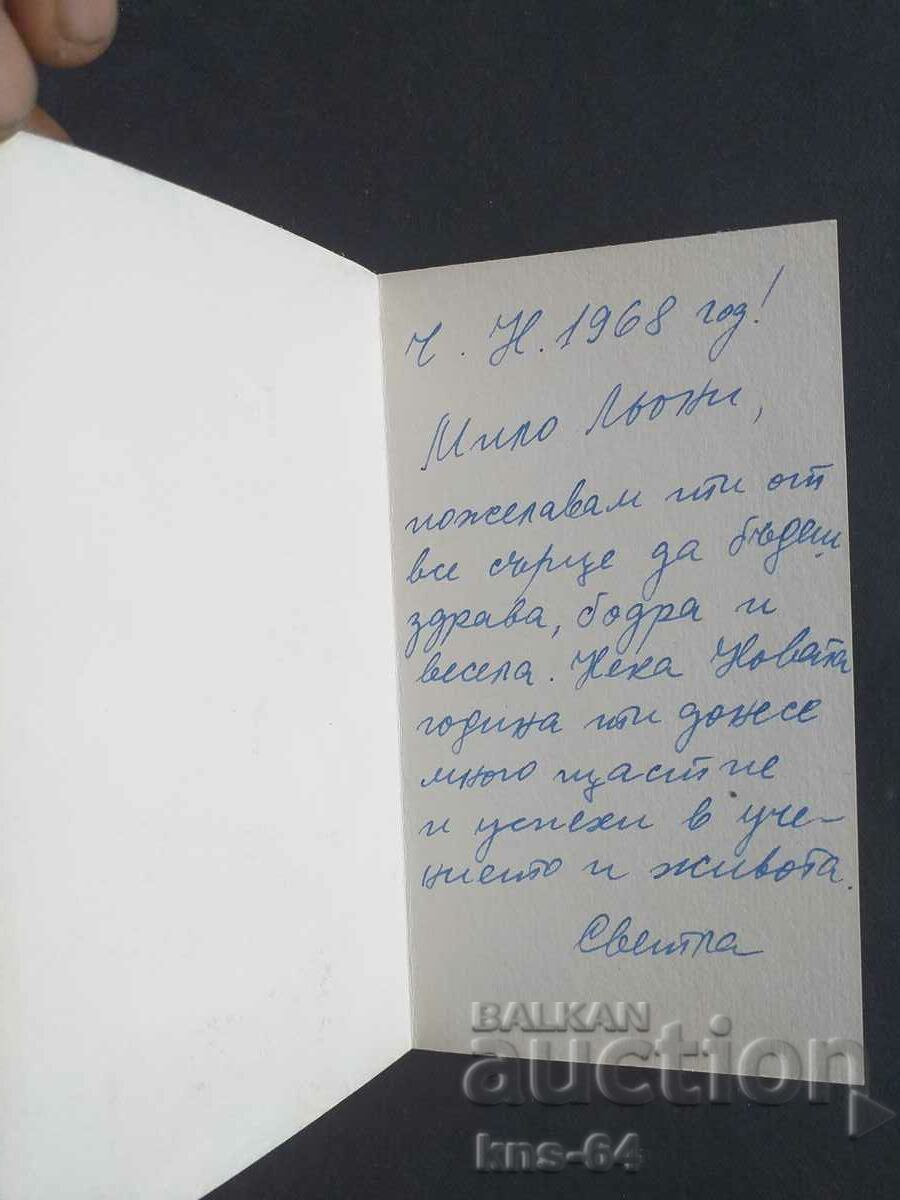 Ч. Н. 1968 год!
Мило Льони,
пожелавам ти от
все сърце да бъдеш
здрава, бодра и
весела. Нека Новата
година ти донесе
много щастие
и успехи в уче-
нието и живота.
Светла
BALKAN
auction
kns-64